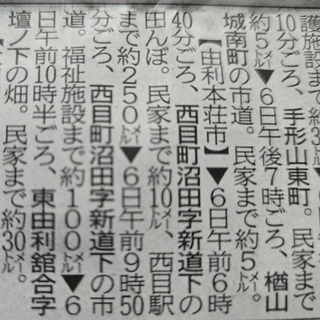 護施設まで約
10分ごろ、手形山東町。民家まで
約5㍍▼6日午後7時ごろ、楢山
城南町の市道。民家まで約5㍍。
【由利本荘市】▼6日午前6時
40分ごろ、西目町沼田字新道下の
田んぼ。民家まで約10㍍、西目駅
まで約250㍍▼6日午前9時50
分ごろ、西目町沼田字新道下の市
道。福祉施設まで約100㍍▼6
日午前10時半ごろ、東由利舘合字
壇ノ下の畑。民家まで約30㍍。